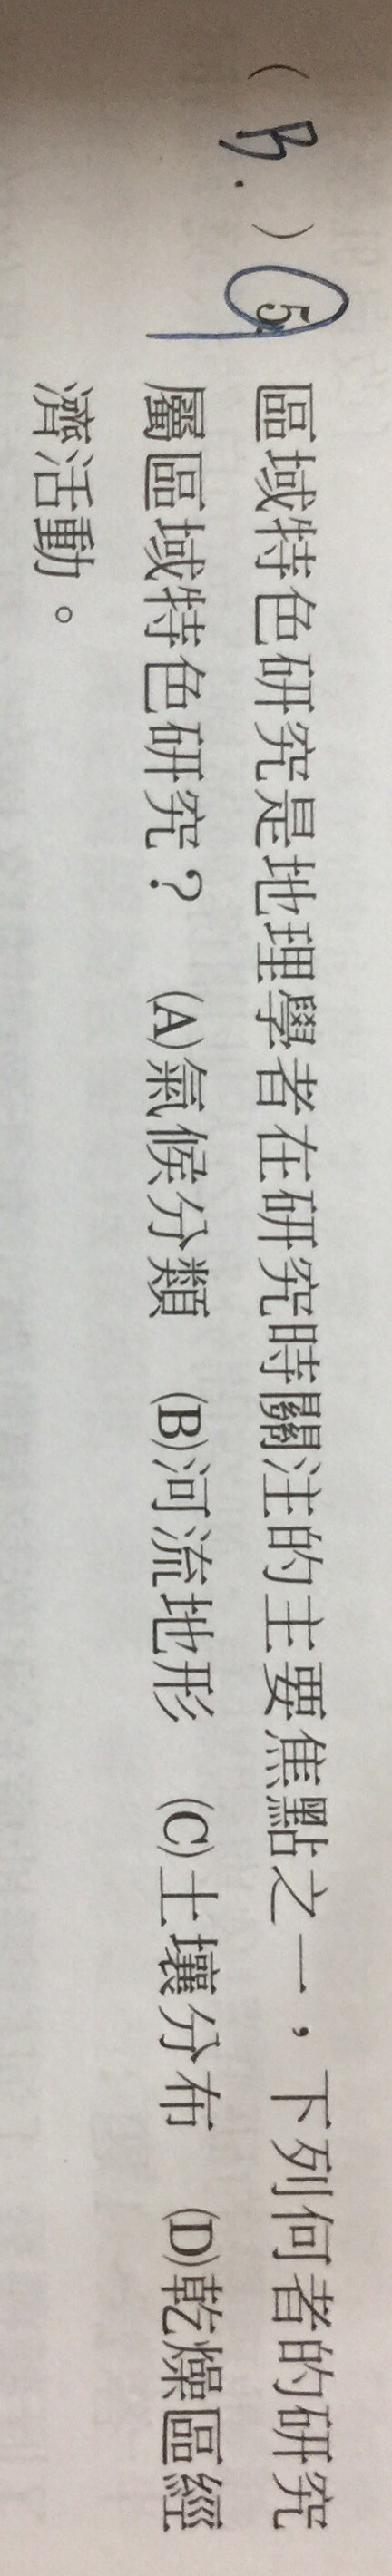 ( B. ) 5. 區域特色研究是地理學者在研究時關注的主要焦點之一，下列何者的研究
屬區域特色研究？ (A)氣候分類 (B)河流地形 (C)土壤分布 (D)乾燥區經
濟活動。